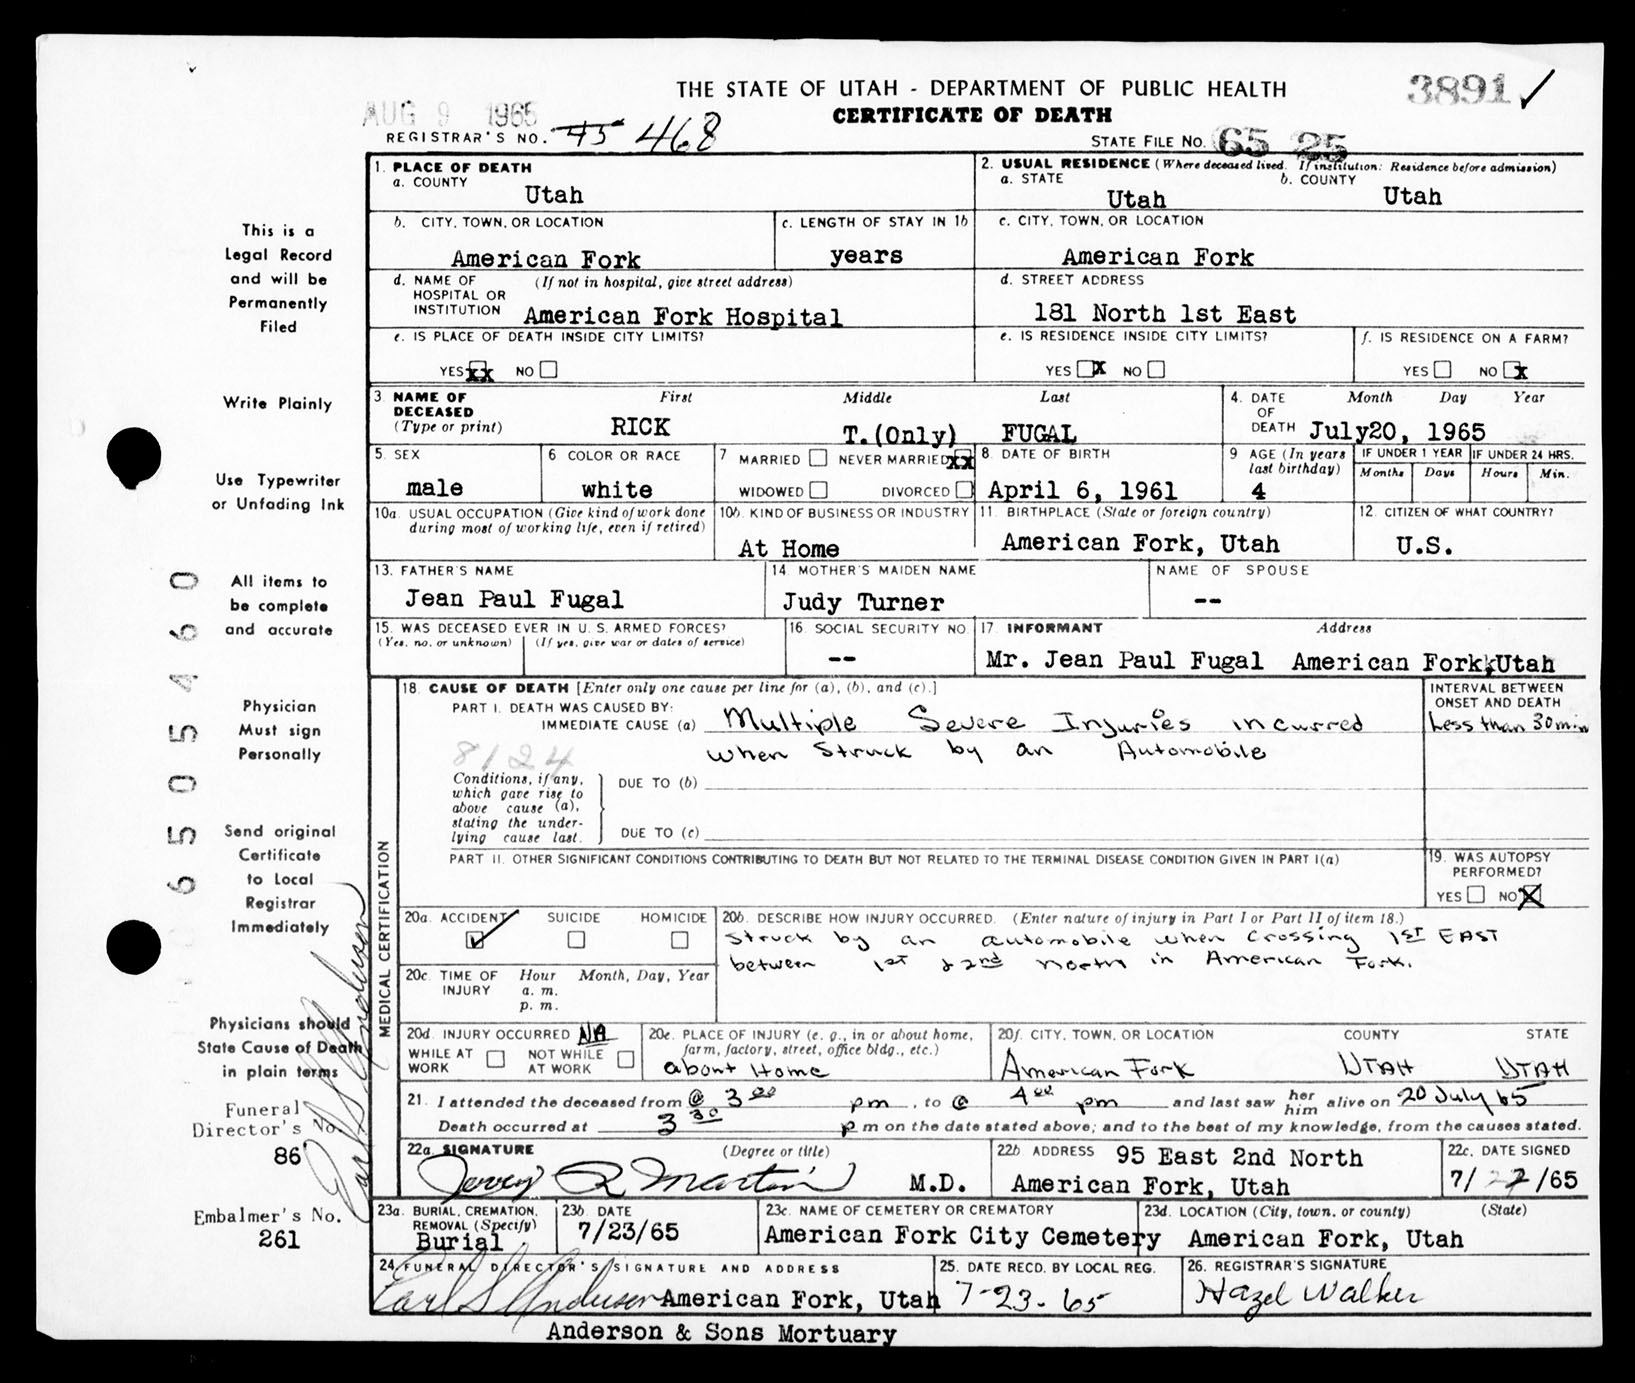 THE STATE OF UTAH - DEPARTMENT OF PUBLIC HEALTH
3891 ✓
AUG 9 1965
CERTIFICATE OF DEATH
REGISTRAR'S NO. 45 468
STATE FILE NO. 65 25
1. PLACE OF DEATH
a. COUNTY
Utah
2. USUAL RESIDENCE (Where deceased lived. If institution: Residence before admission)
a. STATE b. COUNTY
Utah Utah
b. CITY, TOWN, OR LOCATION
American Fork
c. LENGTH OF STAY IN 1b
years
c. CITY, TOWN, OR LOCATION
American Fork
d. NAME OF HOSPITAL OR INSTITUTION (If not in hospital, give street address)
American Fork Hospital
d. STREET ADDRESS
181 North 1st East
e. IS PLACE OF DEATH INSIDE CITY LIMITS?
YES xx NO
e. IS RESIDENCE INSIDE CITY LIMITS?
YES x NO
f. IS RESIDENCE ON A FARM?
YES NO x
3. NAME OF DECEASED (Type or print)
First Middle Last
RICK T.(Only) FUGAL
4. DATE OF DEATH
Month Day Year
July20, 1965
5. SEX
male
6 COLOR OR RACE
white
7 MARRIED NEVER MARRIED xx
WIDOWED DIVORCED
8. DATE OF BIRTH
April 6, 1961
9 AGE (In years last birthday)
4
IF UNDER 1 YEAR
Months Days
IF UNDER 24 HRS.
Hours Min.
10a. USUAL OCCUPATION (Give kind of work done during most of working life, even if retired)
10b. KIND OF BUSINESS OR INDUSTRY
At Home
11. BIRTHPLACE (State or foreign country)
American Fork, Utah
12. CITIZEN OF WHAT COUNTRY?
U.S.
13. FATHER'S NAME
Jean Paul Fugal
14. MOTHER'S MAIDEN NAME
Judy Turner
NAME OF SPOUSE
--
15. WAS DECEASED EVER IN U. S. ARMED FORCES?
(Yes, no, or unknown) (If yes, give war or dates of service)
16. SOCIAL SECURITY NO.
--
17. INFORMANT Address
Mr. Jean Paul Fugal American Fork,Utah
MEDICAL CERTIFICATION
18. CAUSE OF DEATH [Enter only one cause per line for (a), (b), and (c).]
INTERVAL BETWEEN ONSET AND DEATH
PART I. DEATH WAS CAUSED BY:
IMMEDIATE CAUSE (a) Multiple Severe Injuries incurred
Less than 30 min
8124
when struck by an Automobile
Conditions, if any, which gave rise to above cause (a), stating the underlying cause last.
DUE TO (b)
DUE TO (c)
PART II. OTHER SIGNIFICANT CONDITIONS CONTRIBUTING TO DEATH BUT NOT RELATED TO THE TERMINAL DISEASE CONDITION GIVEN IN PART I(a)
19. WAS AUTOPSY PERFORMED?
YES NO X
20a. ACCIDENT ✓ SUICIDE HOMICIDE
20b. DESCRIBE HOW INJURY OCCURRED. (Enter nature of injury in Part I or Part II of item 18.)
Struck by an automobile when crossing 1st EAST
between 1st & 2nd north in American Fork.
20c. TIME OF INJURY
Hour Month, Day, Year
a. m.
p. m.
20d. INJURY OCCURRED NA
WHILE AT WORK NOT WHILE AT WORK
20e. PLACE OF INJURY (e. g., in or about home, farm, factory, street, office bldg., etc.)
about Home
20f. CITY, TOWN, OR LOCATION COUNTY STATE
American Fork UTAH UTAH
21. I attended the deceased from @ 3 00 pm, to @ 4 00 pm and last saw her him alive on 20 July 65
Death occurred at 3 30 p m on the date stated above; and to the best of my knowledge, from the causes stated.
22a. SIGNATURE (Degree or title)
Jerry R Martin M.D.
22b. ADDRESS 95 East 2nd North
American Fork, Utah
22c. DATE SIGNED
7/22/65
23a. BURIAL, CREMATION, REMOVAL (Specify)
Burial
23b. DATE
7/23/65
23c. NAME OF CEMETERY OR CREMATORY
American Fork City Cemetery
23d. LOCATION (City, town, or county) (State)
American Fork, Utah
24. FUNERAL DIRECTOR'S SIGNATURE AND ADDRESS
Earl S Anderson American Fork, Utah
Anderson & Sons Mortuary
25. DATE RECD. BY LOCAL REG.
7-23-65
26. REGISTRAR'S SIGNATURE
Hazel Walker
This is a
Legal Record
and will be
Permanently
Filed
Write Plainly
Use Typewriter
or Unfading Ink
All items to
be complete
and accurate
Physician
Must sign
Personally
Send original
Certificate
to Local
Registrar
Immediately
Physicians should
State Cause of Death
in plain terms
Funeral
Director's No.
86
Embalmer's No.
261
Earl S Anderson
650505460